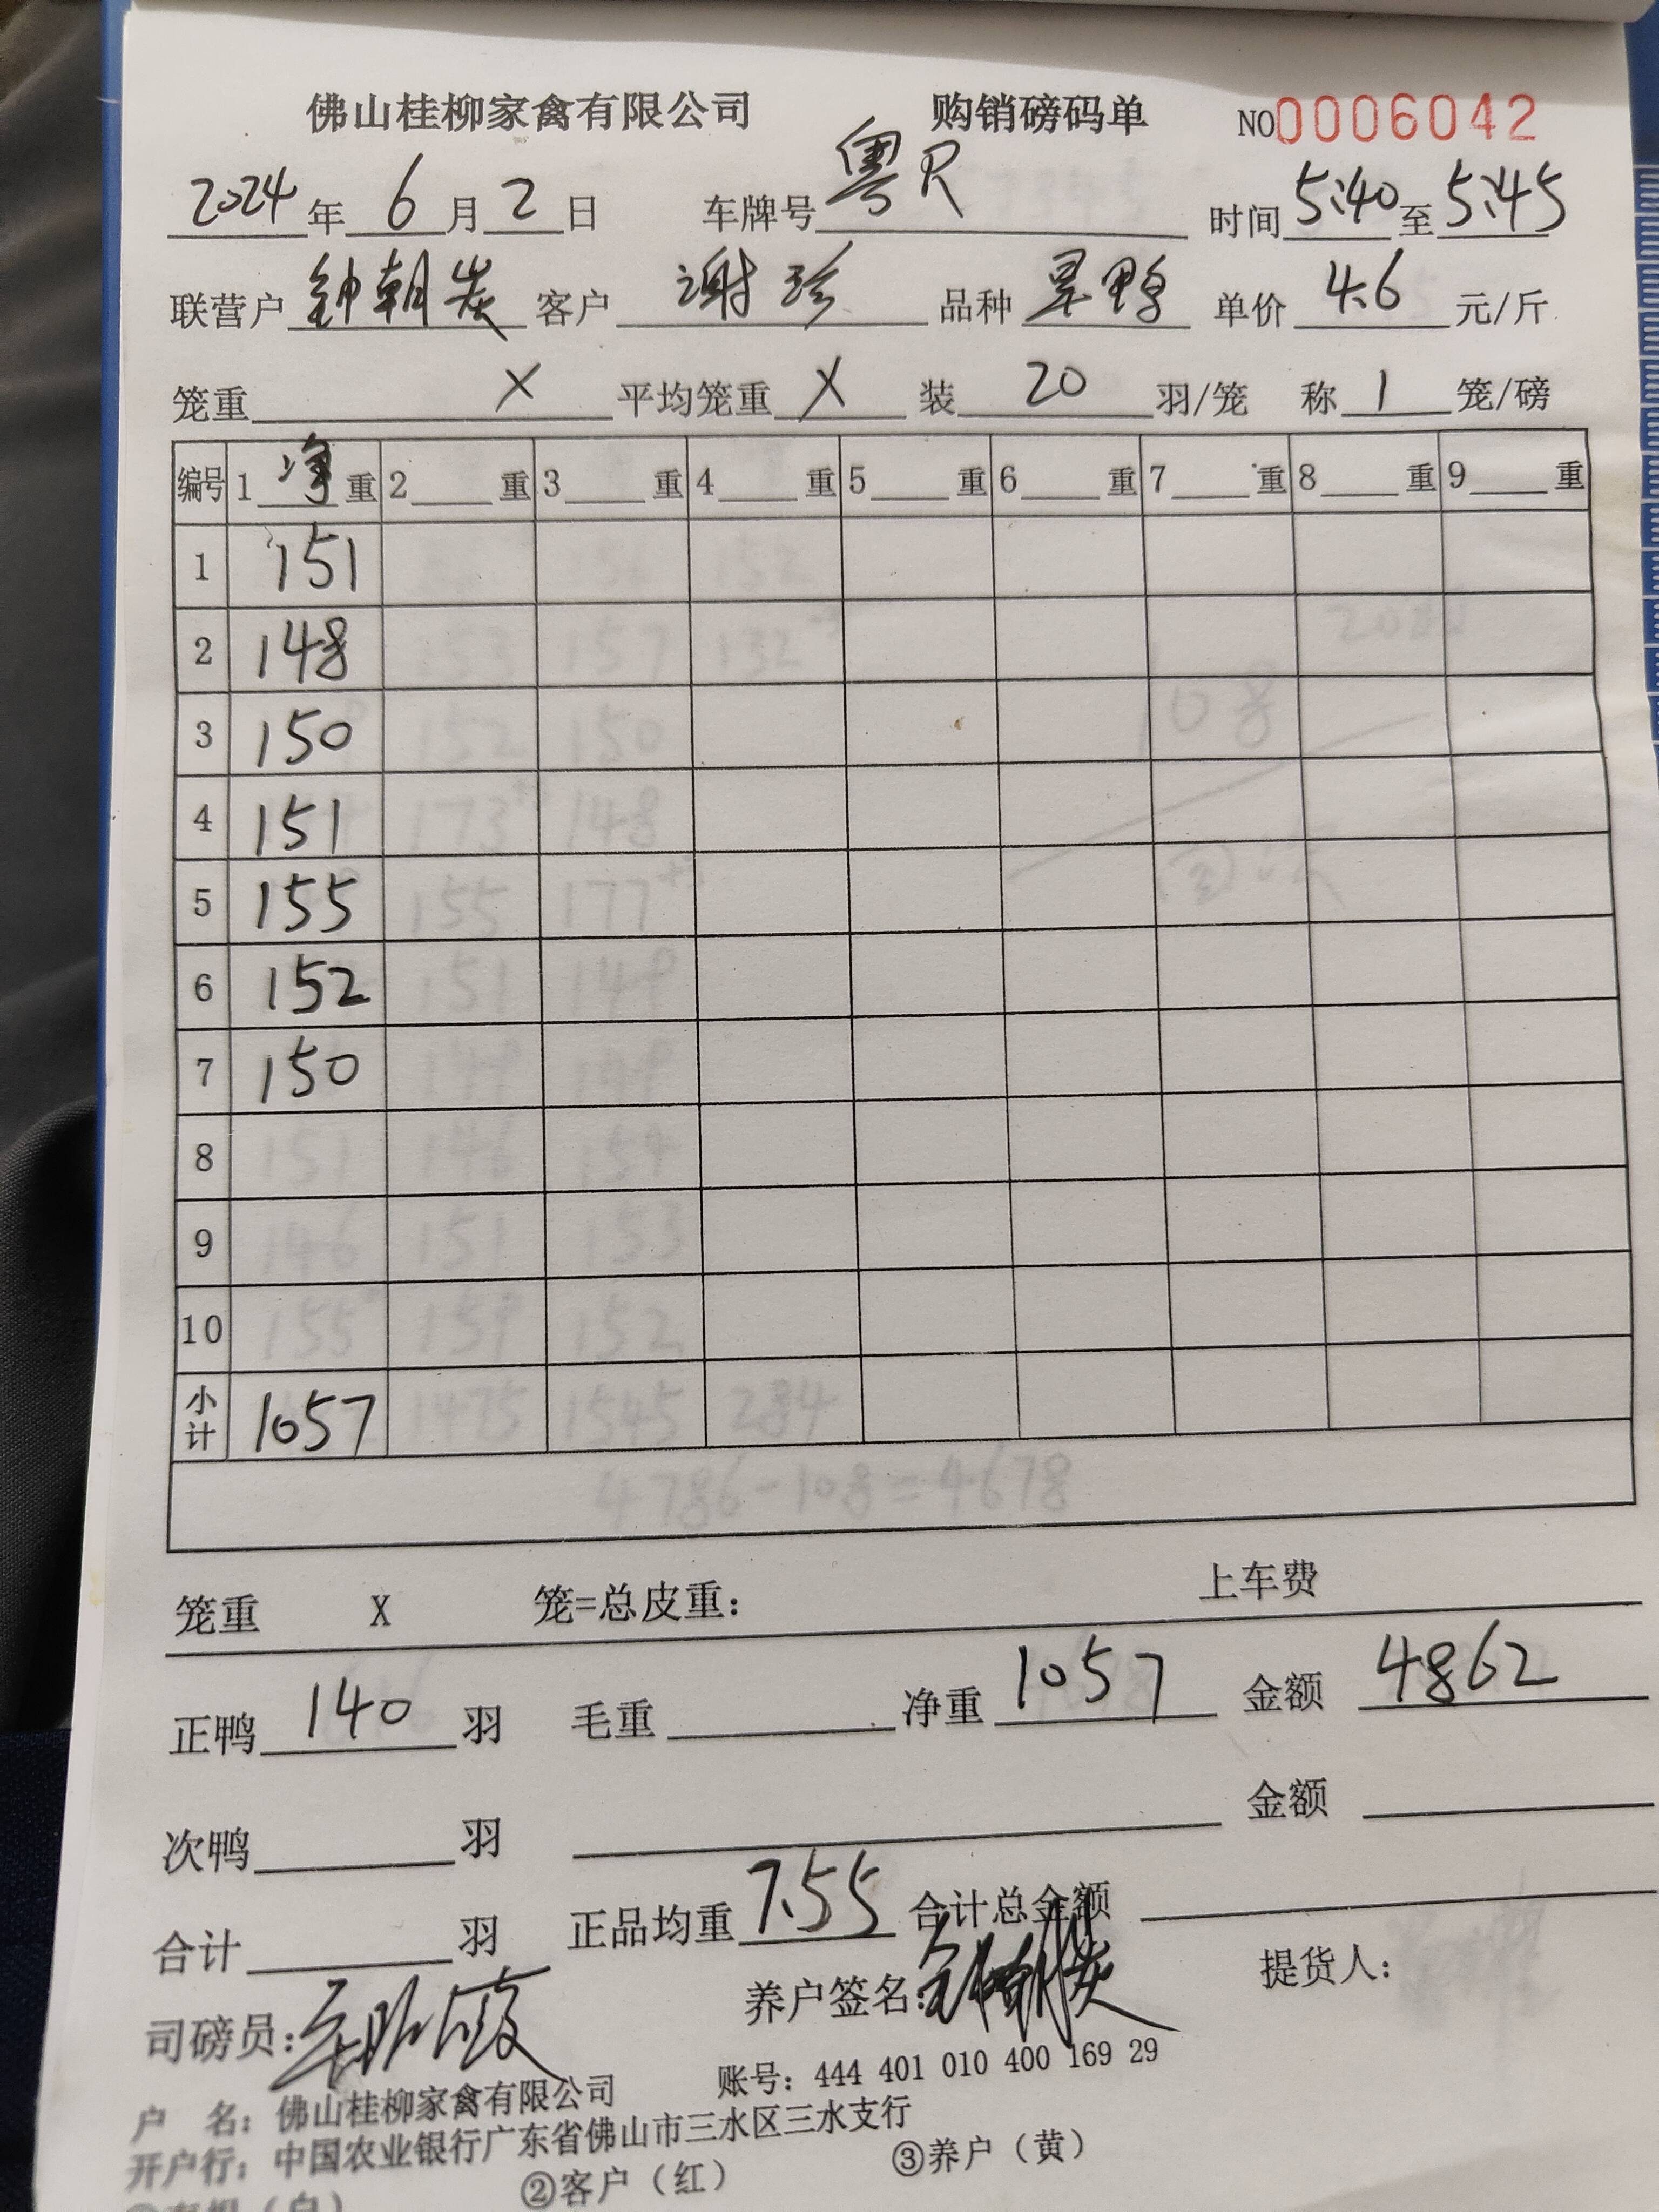 佛山桂柳家禽有限公司 购销磅码单 NO0006042
2024年6月2日 车牌号粤R 时间5:40至5:45
联营户钟朝炭 客户谢珍 品种旱鸭 单价4.6元/斤
笼重 X 平均笼重 X 装 20 羽/笼 称 1 笼/磅
编号 1 净 重 2 重 3 重 4 重 5 重 6 重 7 重 8 重 9 重
1 151
2 148
3 150
4 151
5 155
6 152
7 150
8
9
10
小计 1057
笼重 X 笼=总皮重: 上车费
正鸭 140 羽 毛重 净重 1057 金额 4862
次鸭 羽 金额
合计 羽 正品均重 7.55 合计总金额
司磅员: 养户签名: 钟朝炭 提货人:
户 名: 佛山桂柳家禽有限公司 账号: 444 401 010 400 169 29
开户行: 中国农业银行广东省佛山市三水区三水支行
②客户(红) ③养户(黄)